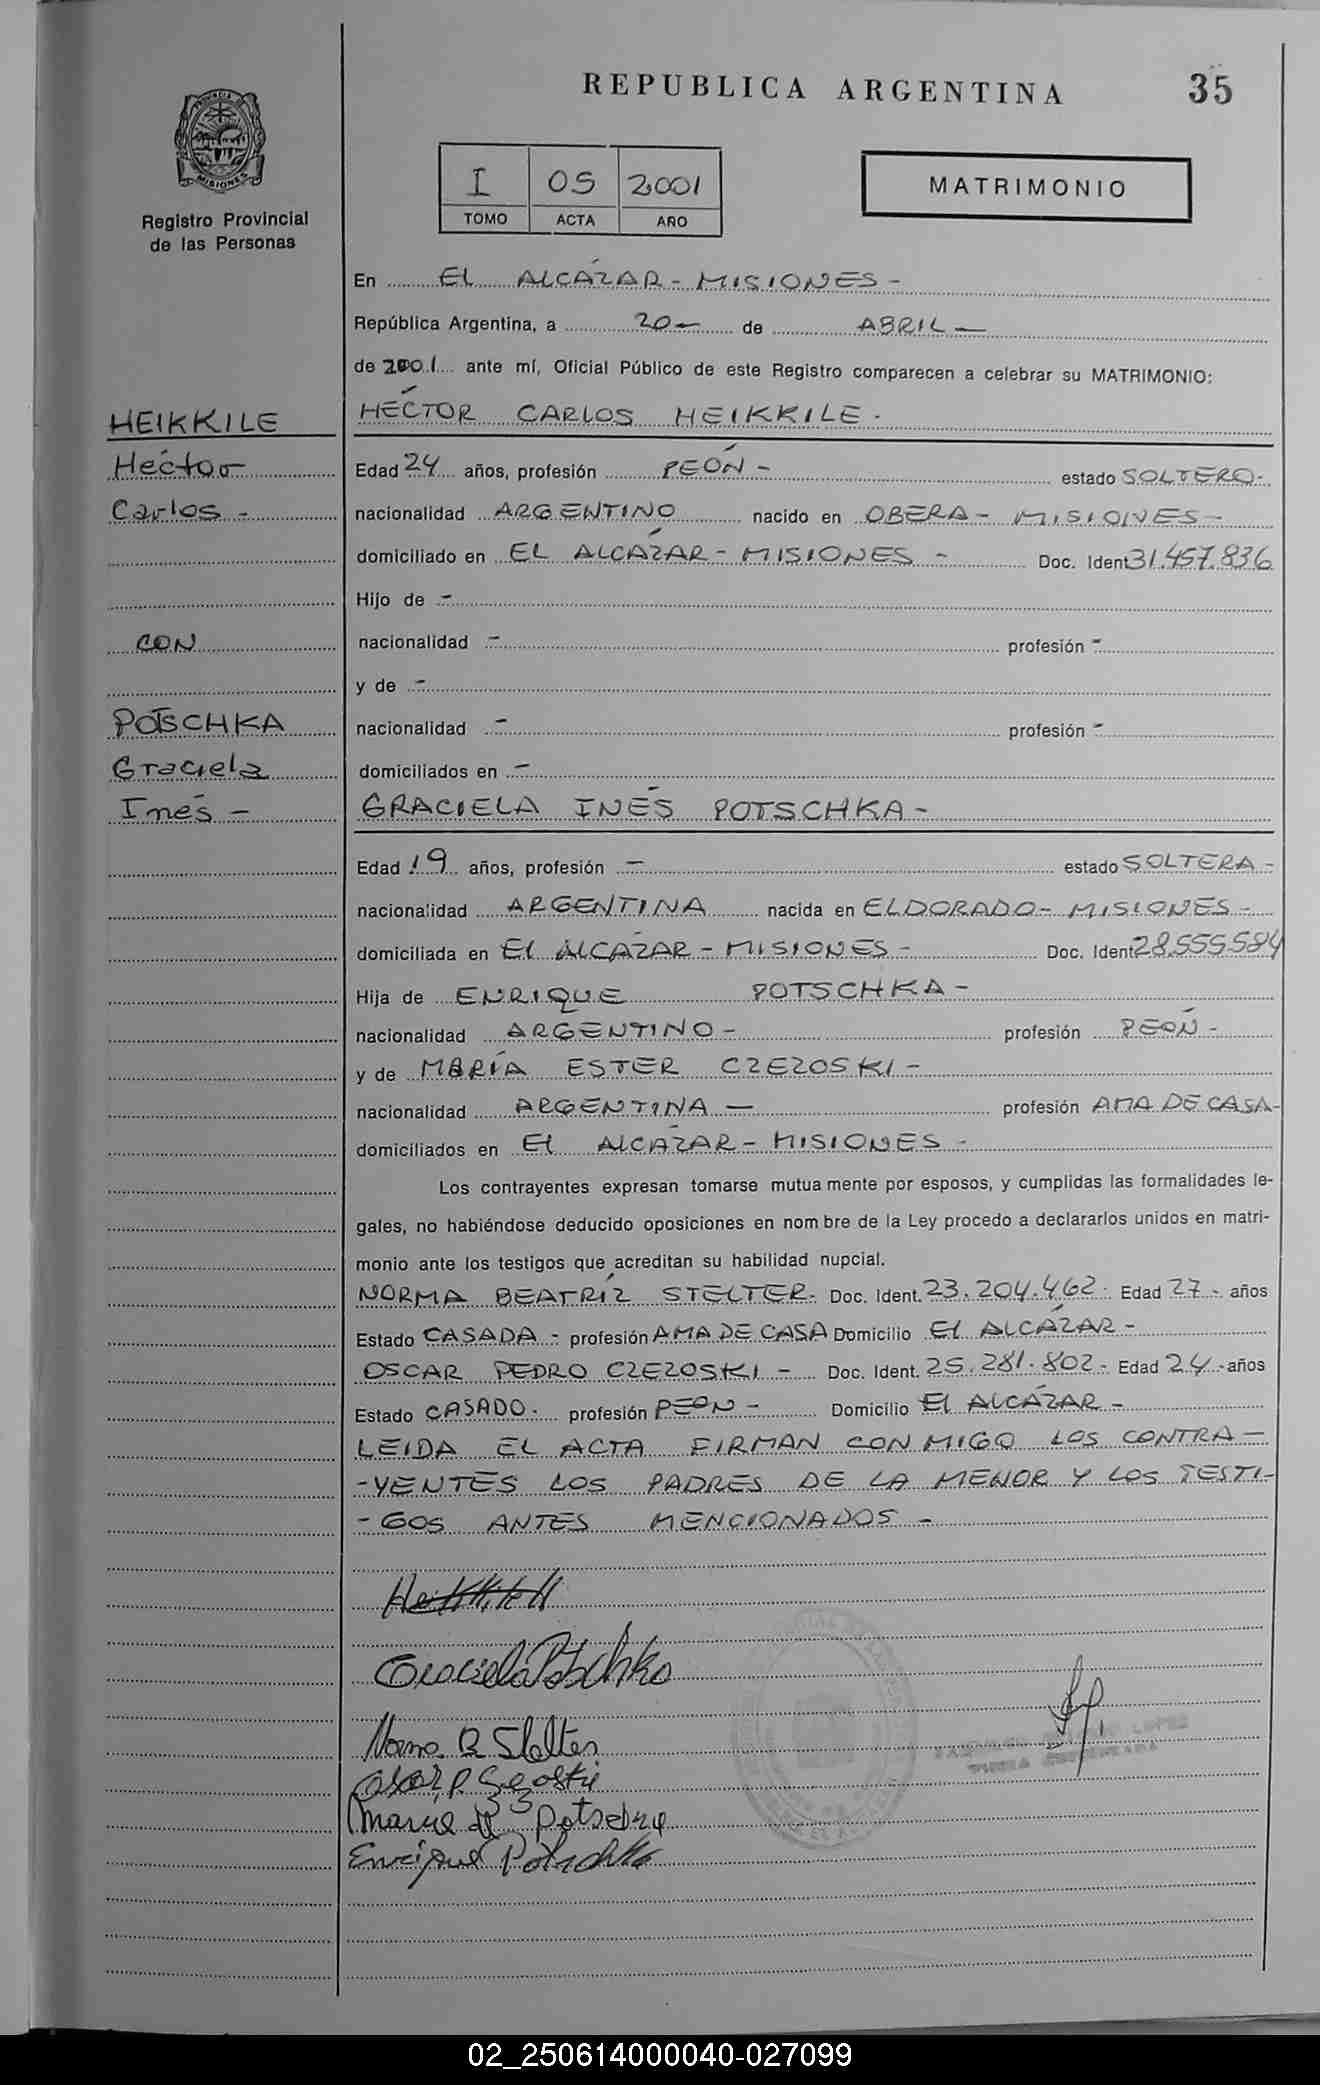 REPUBLICA ARGENTINA 35
I 05 2001
TOMO ACTA AÑO
MATRIMONIO
PROVINCIA DE
MISIONES
Registro Provincial
de las Personas
En EL ALCÁZAR - MISIONES -
República Argentina, a 20 - de ABRIL -
de 2001 ante mí, Oficial Público de este Registro comparecen a celebrar su MATRIMONIO:
HEIKKILE
Héctor
Carlos -
CON
POTSCHKA
Graciela
Inés -
HÉCTOR CARLOS HEIKKILE.
Edad 24 años, profesión PEÓN - estado SOLTERO -
nacionalidad ARGENTINO nacido en OBERA - MISIONES -
domiciliado en EL ALCÁZAR - MISIONES - Doc. Ident 31.457.836
Hijo de -
nacionalidad - profesión -
y de -
nacionalidad - profesión -
domiciliados en -
GRACIELA INÉS POTSCHKA -
Edad 19 años, profesión - estado SOLTERA -
nacionalidad ARGENTINA nacida en ELDORADO - MISIONES -
domiciliada en El ALCÁZAR - MISIONES - Doc. Ident 28.555.584
Hija de ENRIQUE POTSCHKA -
nacionalidad ARGENTINO - profesión PEÓN -
y de MARÍA ESTER CZEZOSKI -
nacionalidad ARGENTINA - profesión AMA DE CASA -
domiciliados en El ALCÁZAR - MISIONES -
Los contrayentes expresan tomarse mutua mente por esposos, y cumplidas las formalidades le-
gales, no habiéndose deducido oposiciones en nom bre de la Ley procedo a declararlos unidos en matri-
monio ante los testigos que acreditan su habilidad nupcial.
NORMA BEATRÍZ STELTER. Doc. Ident. 23.204.462. Edad 27 - años
Estado CASADA - profesión AMA DE CASA Domicilio El ALCÁZAR -
OSCAR PEDRO CZEZOSKI - Doc. Ident. 25.281.802 - Edad 24 - años
Estado CASADO. profesión PEON - Domicilio El ALCÁZAR -
LEIDA EL ACTA FIRMAN CONMIGO LOS CONTRA -
- YENTES LOS PADRES DE LA MENOR Y LOS TESTI -
- GOS ANTES MENCIONADOS -
Graciela Potschka
Norma B Stelter
Enrique Potschka
02_250614000040-027099